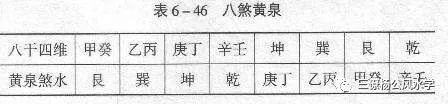 表6-46 八煞黄泉
八干四维 甲癸 乙丙 庚丁 辛壬 坤 巽 艮 乾
黄泉煞水 艮 巽 坤 乾 庚丁 乙丙 甲癸 辛壬
三僚杨公风水学